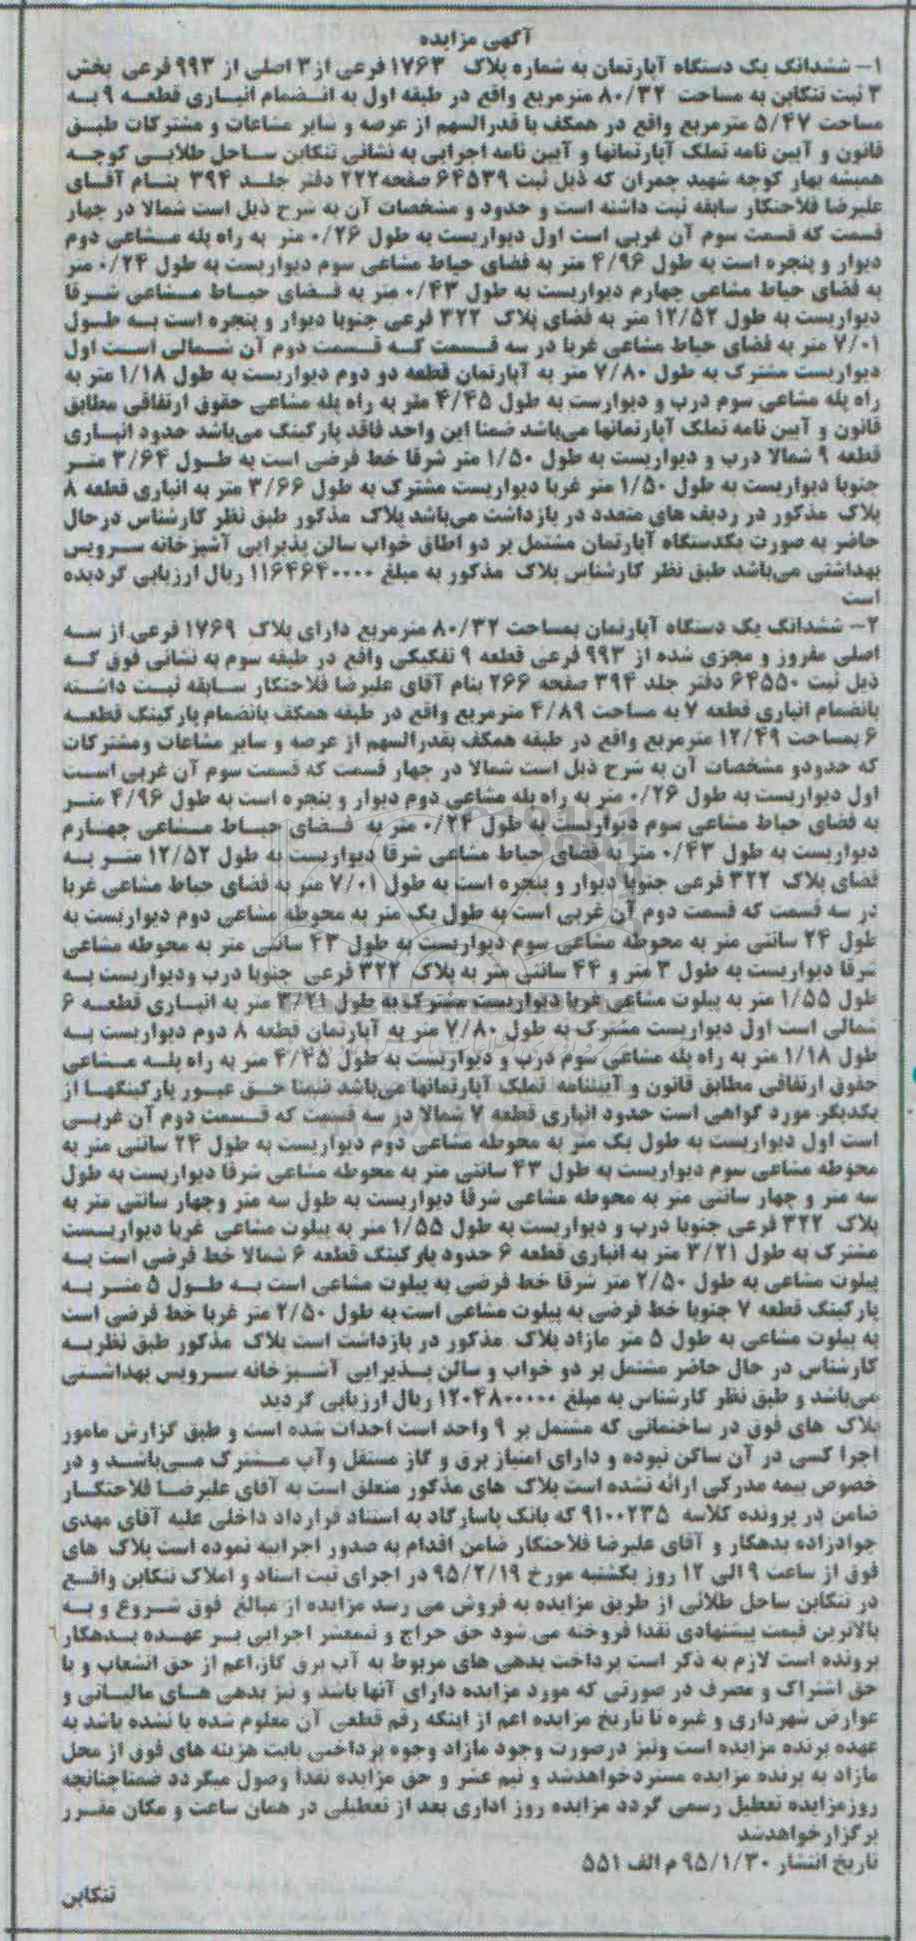 آگهی مزایده
۱- ششدانگ یک دستگاه آپارتمان به شماره پلاک ۱۷۶۳ فرعی از ۳ اصلی از ۹۹۳ فرعی بخش
۳ ثبت تنکابن به مساحت ۸۰/۳۲ مترمربع واقع در طبقه اول به انضمام انباری قطعه ۹ به
مساحت ۵/۴۷ مترمربع واقع در همکف با قدرالسهم از عرصه و سایر مشاعات و مشترکات طبق
قانون و آیین نامه تملک آپارتمانها و آیین نامه اجرایی به نشانی تنکابن ساحل طلایی کوچه
همیشه بهار کوچه شهید چمران که ذیل ثبت ۶۴۵۳۹ صفحه۲۲۲ دفتر جلد ۳۹۴ بنام آقای
علیرضا فلاحتکار سابقه ثبت داشته است و حدود و مشخصات آن به شرح ذیل است شمالا در چهار
قسمت که قسمت سوم آن غربی است اول دیواریست به طول ۰/۲۶ متر به راه پله مشاعی دوم
دیوار و پنجره است به طول ۴/۹۶ متر به فضای حیاط مشاعی سوم دیواریست به طول ۰/۲۴ متر
به فضای حیاط مشاعی چهارم دیواریست به طول ۰/۴۳ متر به فضای حیاط مشاعی شرقا
دیواریست به طول ۱۲/۵۲ متر به فضای پلاک ۳۲۲ فرعی جنوبا دیوار و پنجره است به طول
۷/۰۱ متر به فضای حیاط مشاعی غربا در سه قسمت که قسمت دوم آن شمالی است اول
دیواریست مشترک به طول ۷/۸۰ متر به آپارتمان قطعه دو دوم دیواریست به طول ۱/۱۸ متر به
راه پله مشاعی سوم درب و دیوارست به طول ۴/۴۵ متر به راه پله مشاعی حقوق ارتفاقی مطابق
قانون و آیین نامه تملک آپارتمانها می‌باشد ضمنا این واحد فاقد پارکینگ می‌باشد حدود انباری
قطعه ۹ شمالا درب و دیواریست به طول ۱/۵۰ متر شرقا خط فرضی است به طول ۳/۶۴ متر
جنوبا دیواریست به طول ۱/۵۰ متر غربا دیواریست مشترک به طول ۳/۶۶ متر به انباری قطعه ۸
پلاک مذکور در ردیف های متعدد در بازداشت می‌باشد پلاک مذکور طبق نظر کارشناس درحال
حاضر به صورت یکدستگاه آپارتمان مشتمل بر دو اطاق خواب سالن پذیرایی آشپزخانه سرویس
بهداشتی می‌باشد طبق نظر کارشناس پلاک مذکور به مبلغ ۱۱۶۴۶۴۰۰۰۰ ریال ارزیابی گردیده
است
۲- ششدانگ یک دستگاه آپارتمان بمساحت ۸۰/۳۲ مترمربع دارای پلاک ۱۷۶۹ فرعی از سه
اصلی مفروز و مجزی شده از ۹۹۳ فرعی قطعه ۹ تفکیکی واقع در طبقه سوم به نشانی فوق که
ذیل ثبت ۶۴۵۵۰ دفتر جلد ۳۹۴ صفحه ۲۶۶ بنام آقای علیرضا فلاحتکار سابقه ثبت داشته
بانضمام انباری قطعه ۷ به مساحت ۴/۸۹ مترمربع واقع در طبقه همکف بانضمام پارکینگ قطعه
۶ بمساحت ۱۲/۴۹ مترمربع واقع در طبقه همکف بقدرالسهم از عرصه و سایر مشاعات ومشترکات
که حدودو مشخصات آن به شرح ذیل است شمالا در چهار قسمت که قسمت سوم آن غربی است
اول دیواریست به طول ۰/۲۶ متر به راه پله مشاعی دوم دیوار و پنجره است به طول ۴/۹۶ متر
به فضای حیاط مشاعی سوم دیواریست به طول ۰/۲۴ متر به فضای حیاط مشاعی چهارم
دیواریست به طول ۰/۴۳ متر به فضای حیاط مشاعی شرقا دیواریست به طول ۱۲/۵۲ متر به
فضای پلاک ۳۲۲ فرعی جنوبا دیوار و پنجره است به طول ۷/۰۱ متر به فضای حیاط مشاعی غربا
در سه قسمت که قسمت دوم آن غربی است به طول یک متر به محوطه مشاعی دوم دیواریست به
طول ۲۴ سانتی متر به محوطه مشاعی سوم دیواریست به طول ۴۳ سانتی متر به محوطه مشاعی
شرقا دیواریست به طول ۳ متر و ۴۴ سانتی متر به پلاک ۳۲۲ فرعی جنوبا درب ودیواریست به
طول ۱/۵۵ متر به پیلوت مشاعی غربا دیواریست مشترک به طول ۳/۲۱ متر به انباری قطعه ۶
شمالی است اول دیواریست مشترک به طول ۷/۸۰ متر به آپارتمان قطعه ۸ دوم دیواریست به
طول ۱/۱۸ متر به راه پله مشاعی سوم درب و دیواریست به طول ۴/۴۵ متر به راه پله مشاعی
حقوق ارتفاقی مطابق قانون و آییننامه تملک آپارتمانها می‌باشد ضمنا حق عبور پارکینگها از
یکدیگر مورد گواهی است حدود انباری قطعه ۷ شمالا در سه قسمت که قسمت دوم آن غربی
است اول دیواریست به طول یک متر به محوطه مشاعی دوم دیواریست به طول ۲۴ سانتی متر به
محوطه مشاعی سوم دیواریست به طول ۴۳ سانتی متر به محوطه مشاعی شرقا دیواریست به طول
سه متر و چهار سانتی متر به محوطه مشاعی شرقا دیواریست به طول سه متر وچهار سانتی متر به
پلاک ۳۲۲ فرعی جنوبا درب و دیواریست به طول ۱/۵۵ متر به پیلوت مشاعی غربا دیواریست
مشترک به طول ۳/۲۱ متر به انباری قطعه ۶ حدود پارکینگ قطعه ۶ شمالا خط فرضی است به
پیلوت مشاعی به طول ۲/۵۰ متر شرقا خط فرضی به پیلوت مشاعی است به طول ۵ متر به
پارکینگ قطعه ۷ جنوبا خط فرضی به پیلوت مشاعی است به طول ۲/۵۰ متر غربا خط فرضی است
به پیلوت مشاعی به طول ۵ متر مازاد پلاک مذکور در بازداشت است پلاک مذکور طبق نظریه
کارشناس در حال حاضر مشتمل بر دو خواب و سالن پذیرایی آشپزخانه سرویس بهداشتی
می‌باشد و طبق نظر کارشناس به مبلغ ۱۲۰۴۸۰۰۰۰۰ ریال ارزیابی گردید
پلاک های فوق در ساختمانی که مشتمل بر ۹ واحد است احداث شده است و طبق گزارش مامور
اجرا کسی در آن ساکن نبوده و دارای امتیاز برق و گاز مستقل وآب مشترک می‌باشد و در
خصوص بیمه مدرکی ارائه نشده است پلاک های مذکور متعلق است به آقای علیرضا فلاحتکار
ضامن در پرونده کلاسه ۹۱۰۰۲۳۵ که بانک پاسارگاد به استناد قرارداد داخلی علیه آقای مهدی
جوادزاده بدهکار و آقای علیرضا فلاحتکار ضامن اقدام به صدور اجراییه نموده است پلاک های
فوق از ساعت ۹ الی ۱۲ روز یکشنبه مورخ ۹۵/۲/۱۹ در اجرای ثبت اسناد و املاک تنکابن واقع
در تنکابن ساحل طلائی از طریق مزایده به فروش می رسد مزایده از مبالغ فوق شروع و به
بالاترین قیمت پیشنهادی نقدا فروخته می شود حق حراج و نیمعشر اجرایی بر عهده بدهکار
پرونده است لازم به ذکر است پرداخت بدهی های مربوط به آب برق گاز.اعم از حق انشعاب و یا
حق اشتراک و مصرف در صورتی که مورد مزایده دارای آنها باشد و نیز بدهی های مالیاتی و
عوارض شهرداری و غیره تا تاریخ مزایده اعم از اینکه رقم قطعی آن معلوم شده یا نشده باشد به
عهده برنده مزایده است ونیز درصورت وجود مازاد وجوه پرداختی بابت هزینه های فوق از محل
مازاد به برنده مزایده مستردخواهدشد و نیم عشر و حق مزایده نقدا وصول میگردد ضمناچنانچه
روزمزایده تعطیل رسمی گردد مزایده روز اداری بعد از تعطیلی در همان ساعت و مکان مقرر
برگزارخواهدشد
تاریخ انتشار ۹۵/۱/۳۰ م الف ۵۵۱
تنکابن